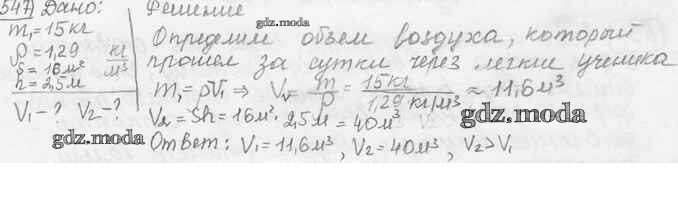 547) Дано:
m₁=15кг
ρ=1,29 кг/м³
S=16м²
h=2,5м
V₁-? V₂-?
gdz.moda
Решение
gdz.moda
Определим объем воздуха, который
прошел за сутки через легкие ученика
m₁=ρV₁ ⇒ V₁= m/ρ = 15кг/1,29 кг/м³ ≈ 11,6м³
V₂=Sh=16м²·2,5м=40м³
gdz.moda
Ответ: V₁=11,6м³, V₂=40м³, V₂>V₁
gdz.moda